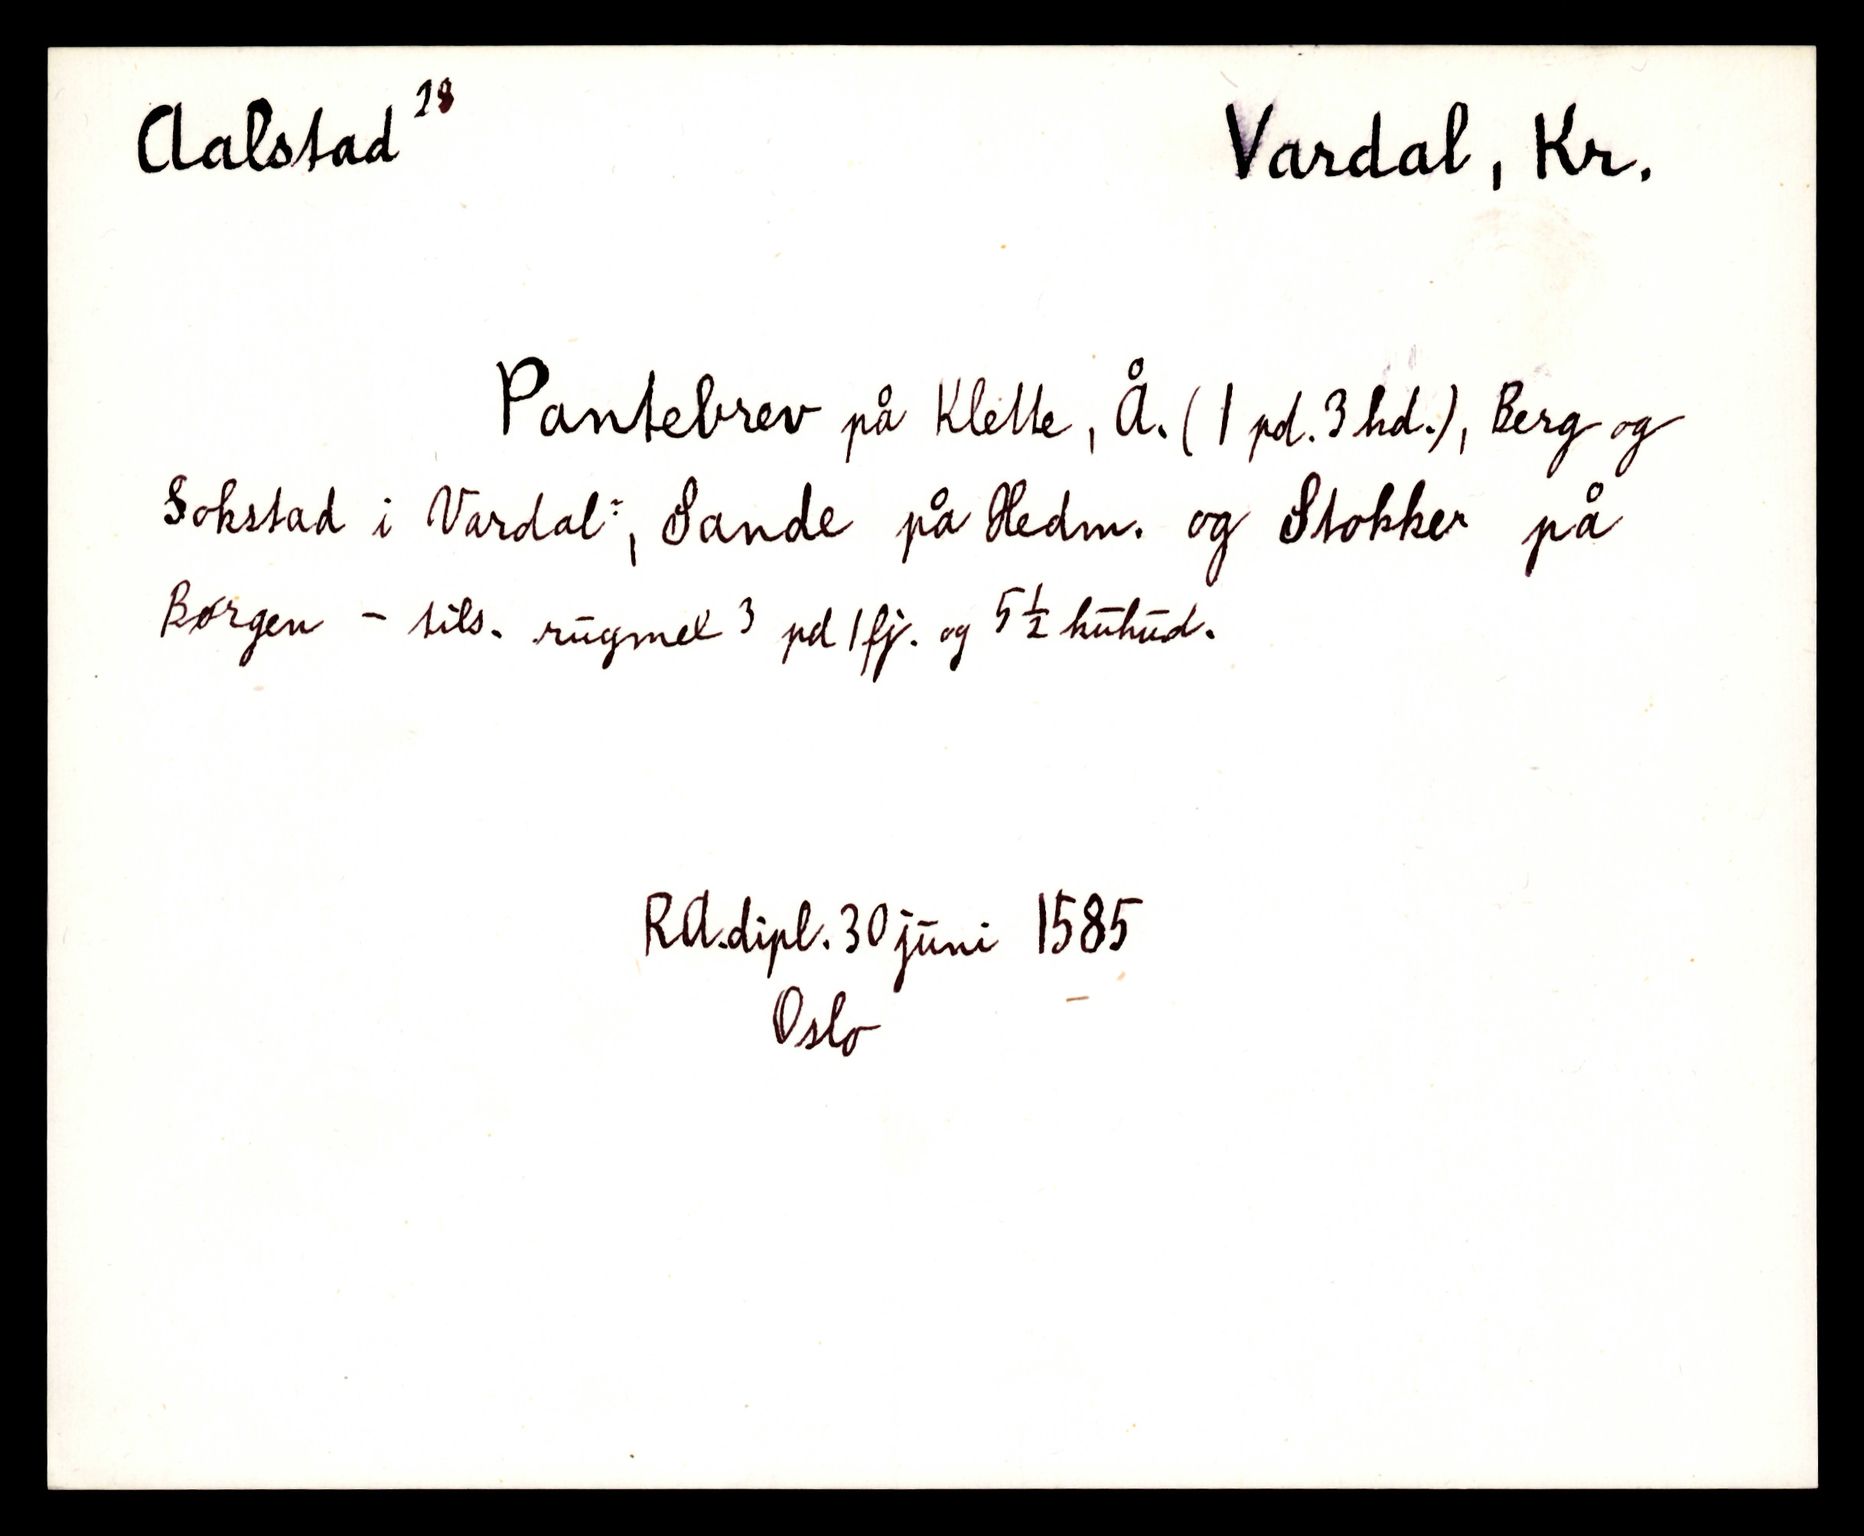 Aalstad 28 Vardal, Kr.
Pantebrev på Klette, Å. (1 pd. 3 hd.), Berg og
Sokstad i Vardal:, Sande på Hedm. og Stokker på
Børgen - tils. rugmel 3 pd 1 fj. og 5 1/2 huhud.
RA.dipl. 30 juni 1585
Oslo